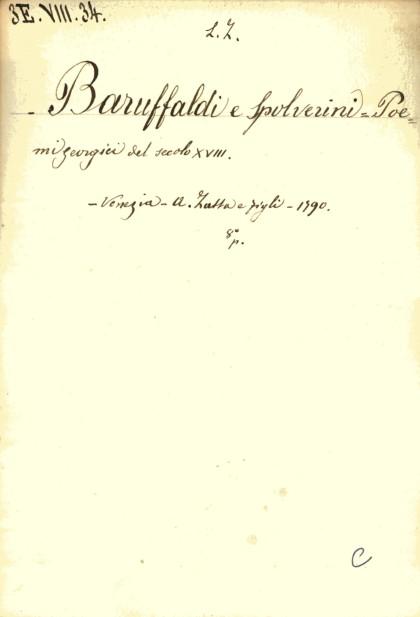 3E.VIII.34.
L.Z.
- Baruffaldi e Spolverini = Poe=
mi georgici del secolo XVIII.
- Venezia - A. Zatta e figli - 1790.
8°
p.
C